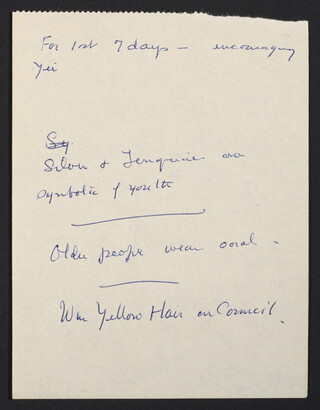 For 1st 7 days — encouraging
Yei
Sy
Silver & Turquoise are
symbolic of youth
Older people wear coral -
Wm Yellow Hair on Council.